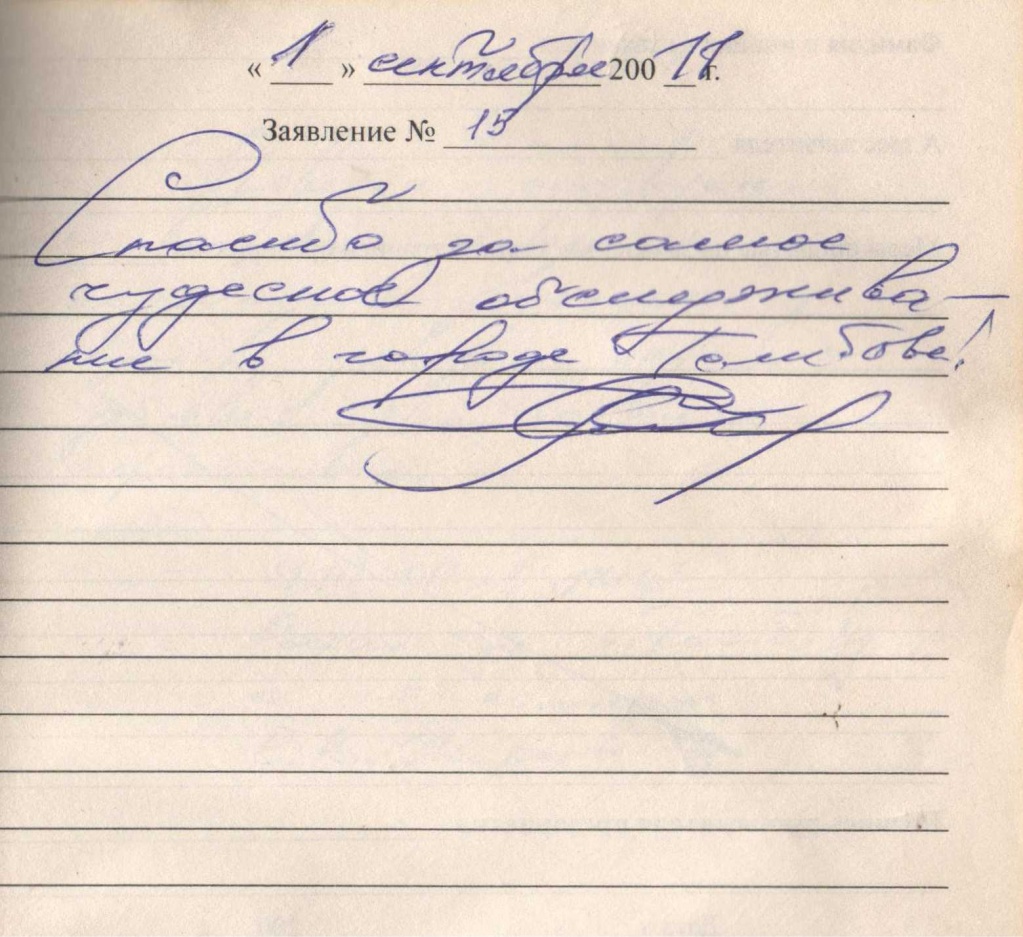 « 1 » сентября 200 11 г.
Заявление № 15
Спасибо за самое
чудесное обслержива-
ние в городе Тамбове!